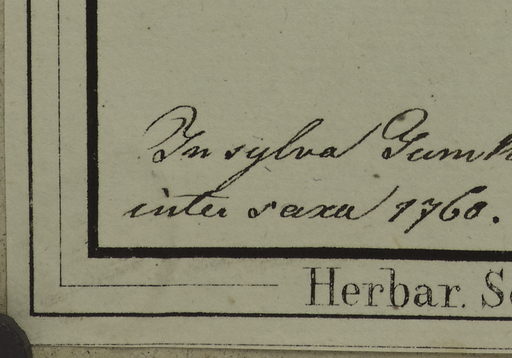 In sylva
inter saxa 1760.
Herbar.